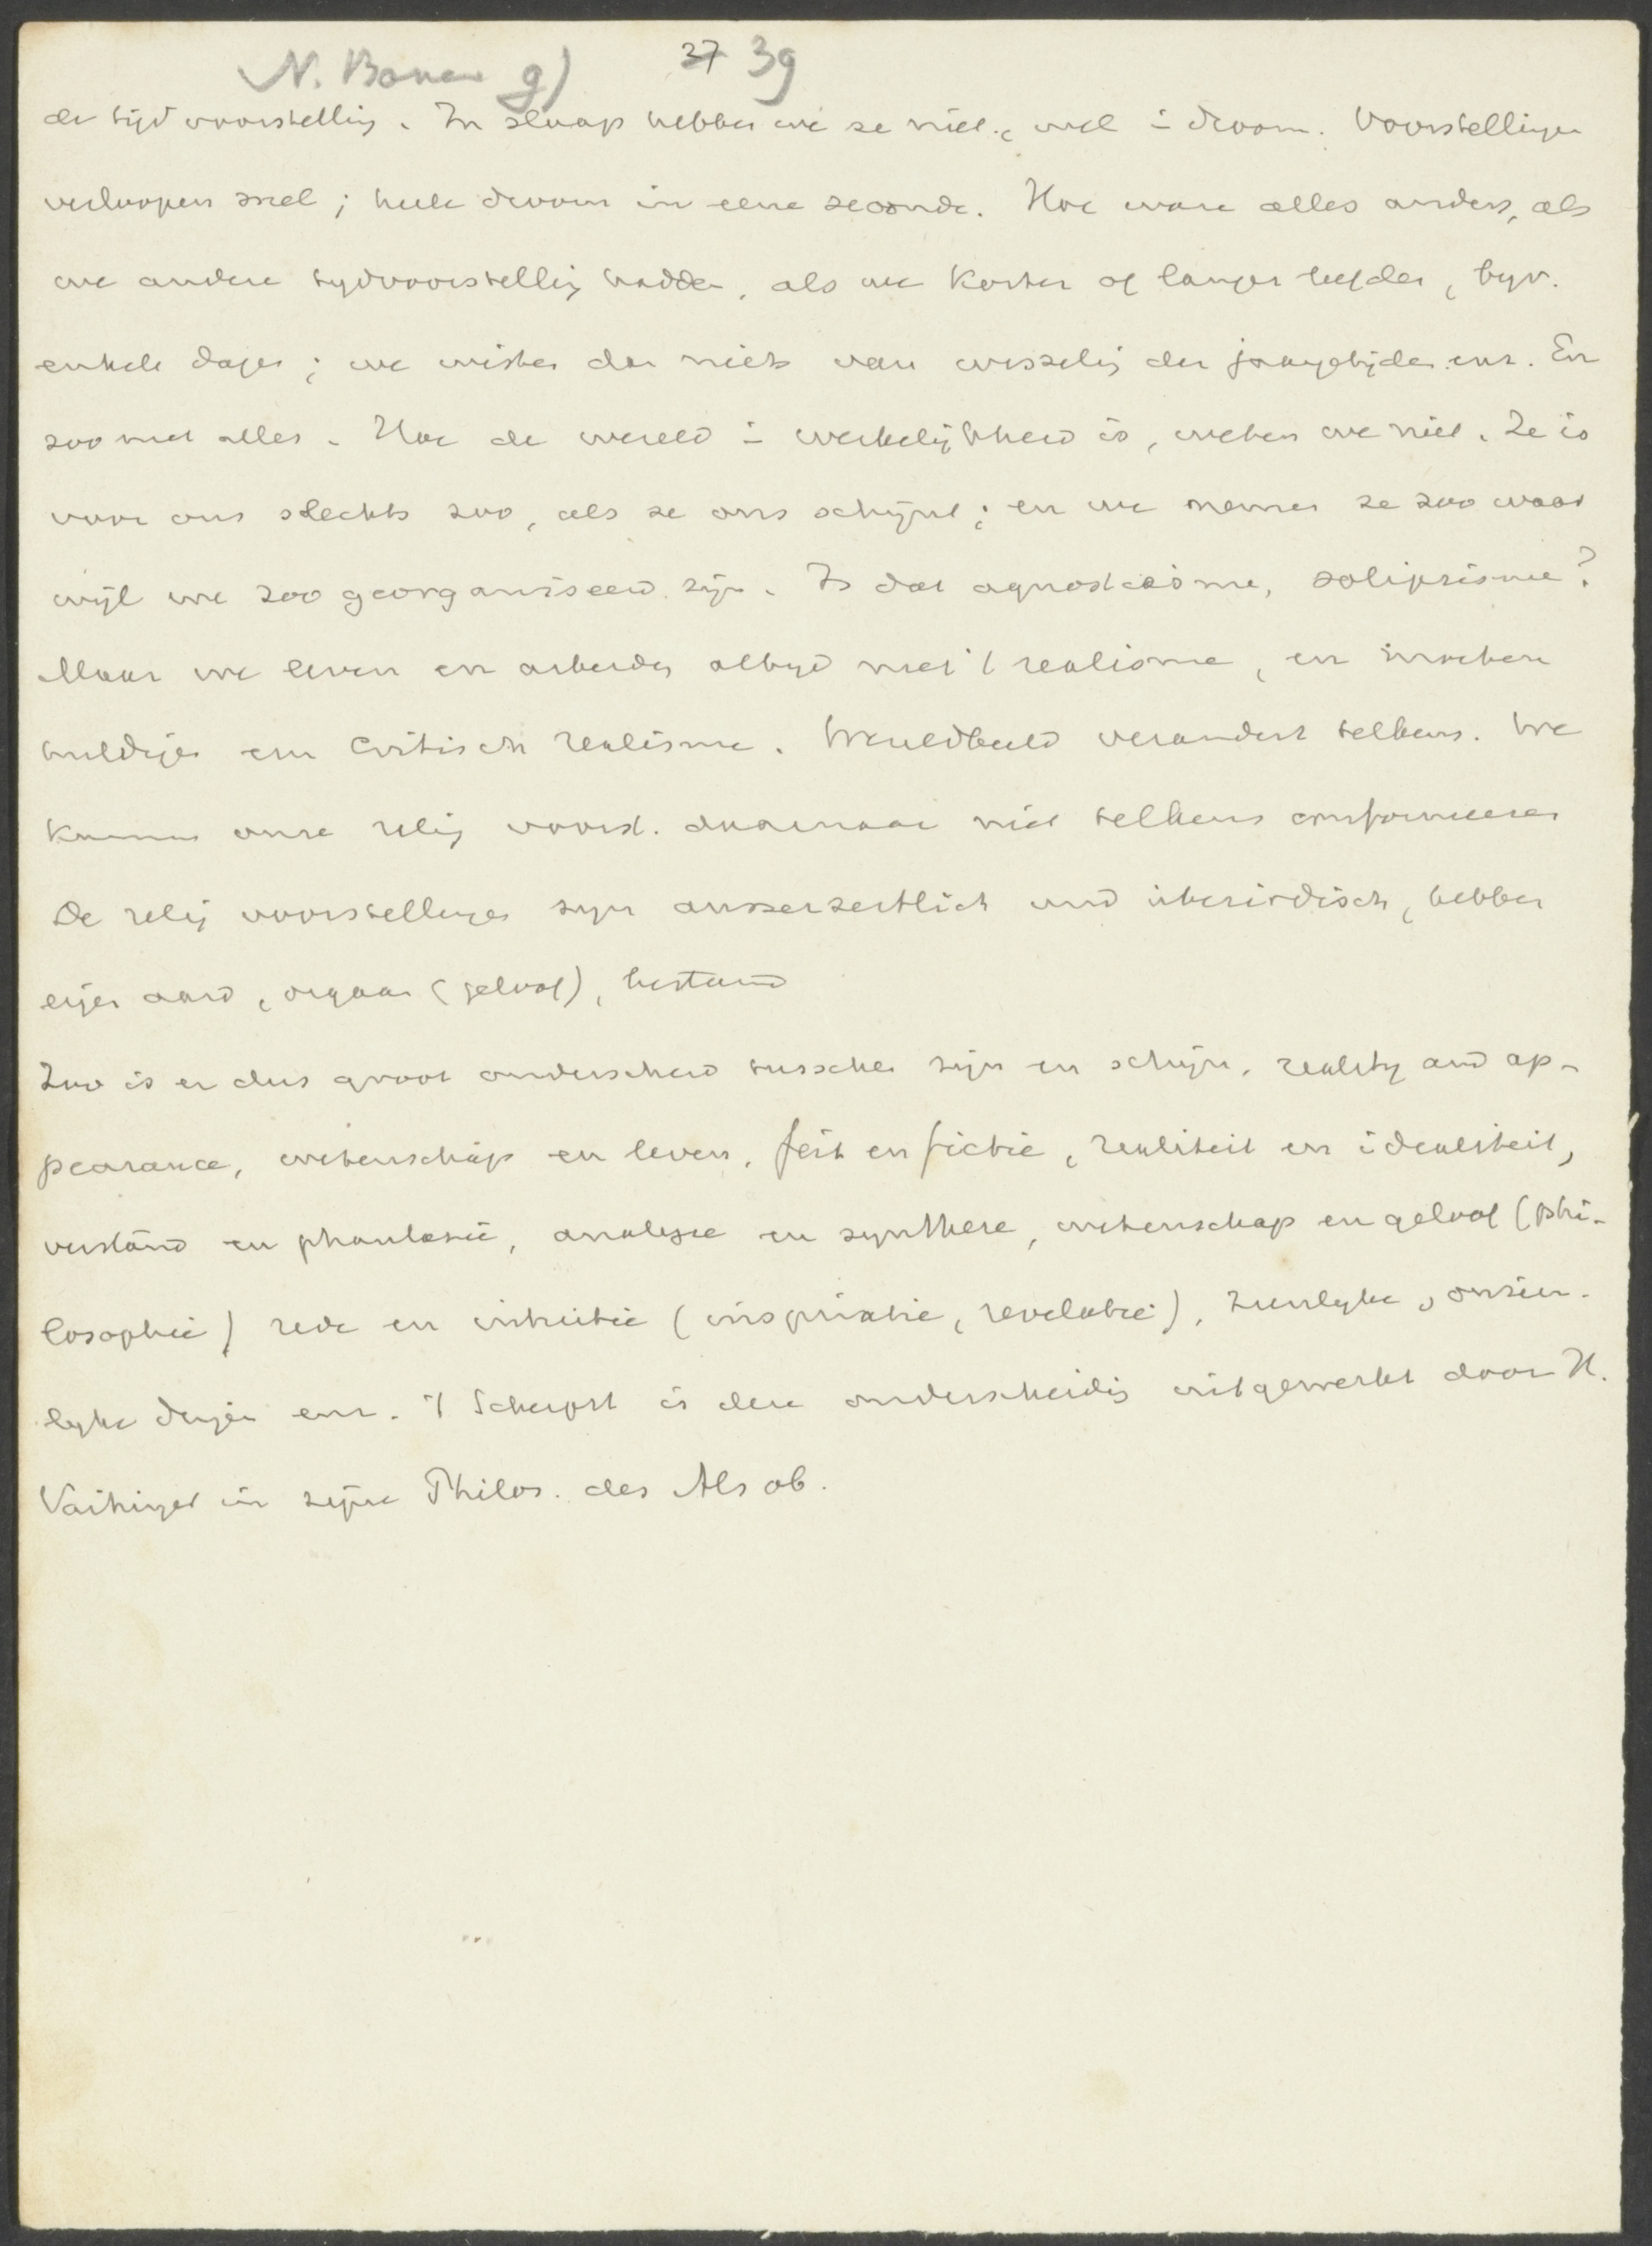 N. Bonen g) 37 39
de tijdvoorstelling. In slaap hebben we ze niet, wel in droom. Voorstellingen
verloopen snel; heele droom in eene seconde. Hoe ware alles anders, als
we andere tydvoorstelling hadden, als we korter of langer leefden, byv.
enkele dagen; we wisten dan niets van wisseling der jaargetijden enz. En
zoo met alles. Hoe de wereld in werkelijkheid is, weten we niet. Ze is
voor ons slechts zoo, als ze ons schijnt; en we nemen ze zoo waar
wijl we zoo georganiseerd zijn. Is dat agnosticisme, solipsisme?
Maar we leven en arbeiden altyd met 't realisme, en moeten
huldigen een critisch realisme. Wereldbeeld verandert telkens. We
kunnen onze relig voorst. daarnaar niet telkens conformeeren
De relig voorstellingen zyn ausserzeitlich und überirdisch, hebben
eigen aard, orgaan (geloof), bestand
Zoo is er dus groot onderscheid tusschen zijn en schijn, reality and ap-
pearance, wetenschap en leven, feit en fictie, realiteit en idealiteit,
verstand en phantasie, analyse en synthese, wetenschap en geloof (phi-
losophie) rede en intuitie (inspiratie, revelatie), zienlyke, onzien-
lyke dingen enz. 't Scherpst is deze onderscheiding uitgewerkt door H.
Vaihinger in zijne Philos. des Als ob.